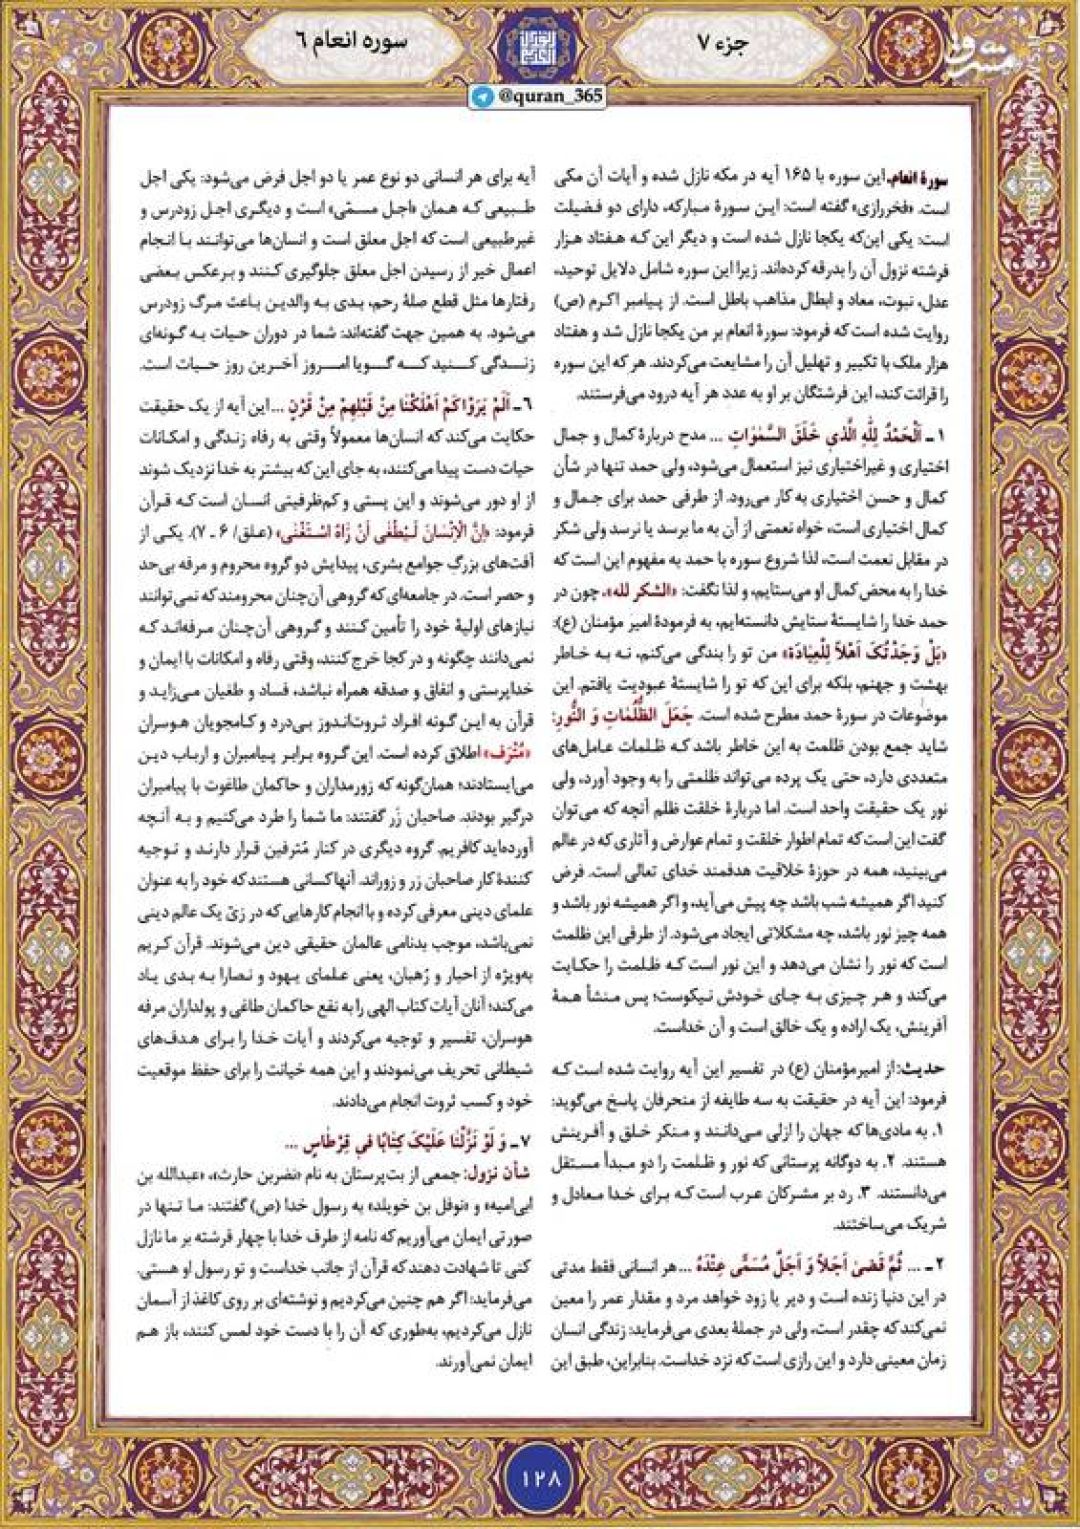 جزء ۷
سوره انعام ۶
@quran_365
سورهٔ انعام. این سوره با ۱۶۵ آیه در مکه نازل شده و آیات آن مکی
است. «فخررازی» گفته است: این سورهٔ مبارکه، دارای دو فضیلت
است: یکی این‌که یکجا نازل شده است و دیگر این که هفتاد هزار
فرشته نزول آن را بدرقه کرده‌اند. زیرا این سوره شامل دلایل توحید،
عدل، نبوت، معاد و ابطال مذاهب باطل است. از پیامبر اکرم (ص)
روایت شده است که فرمود: سورهٔ انعام بر من یکجا نازل شد و هفتاد
هزار ملک با تکبیر و تهلیل آن را مشایعت می‌کردند. هر که این سوره
را قرائت کند، این فرشتگان بر او به عدد هر آیه درود می‌فرستند.
۱ـ اَلْحَمْدُ لِلّٰهِ الَّذي خَلَقَ السَّمٰوَاتِ ... مدح دربارهٔ کمال و جمال
اختیاری و غیراختیاری نیز استعمال می‌شود، ولی حمد تنها در شأن
کمال و حسن اختیاری به کار می‌رود. از طرفی حمد برای جمال و
کمال اختیاری است، خواه نعمتی از آن به ما برسد یا نرسد ولی شکر
در مقابل نعمت است، لذا شروع سوره با حمد به مفهوم این است که
خدا را به محض کمال او می‌ستاییم، و لذا نگفت: «الشکر لله»، چون در
حمد خدا را شایستهٔ ستایش دانسته‌ایم، به فرمودهٔ امیر مؤمنان (ع):
«بَلْ وَجَدْتُکَ اَهْلاً لِلْعِبَادَة» من تو را بندگی می‌کنم، نه به خاطر
بهشت و جهنم، بلکه برای این که تو را شایستهٔ عبودیت یافتم. این
موضوعات در سورهٔ حمد مطرح شده است. جَعَلَ الظُّلُمَاتِ وَ النُّورِ:
شاید جمع بودن ظلمت به این خاطر باشد که ظلمات عامل‌های
متعددی دارد، حتی یک پرده می‌تواند ظلمتی را به وجود آورد، ولی
نور یک حقیقت واحد است. اما دربارهٔ خلقت ظلم آنچه که می‌توان
گفت این است که تمام اطوار خلقت و تمام عوارض و آثاری که در عالم
می‌بینید، همه در حوزهٔ خلاقیت هدفمند خدای تعالی است. فرض
کنید اگر همیشه شب باشد چه پیش می‌آید، و اگر همیشه نور باشد و
همه چیز نور باشد، چه مشکلاتی ایجاد می‌شود. از طرفی این ظلمت
است که نور را نشان می‌دهد و این نور است که ظلمت را حکایت
می‌کند و هر چیزی به جای خودش نیکوست؛ پس منشأ همهٔ
آفرینش، یک اراده و یک خالق است و آن خداست.
حدیث: از امیرمؤمنان (ع) در تفسیر این آیه روایت شده است که
فرمود: این آیه در حقیقت به سه طایفه از منحرفان پاسخ می‌گوید:
۱. به مادی‌ها که جهان را ازلی می‌دانند و منکر خلق و آفرینش
هستند. ۲. به دوگانه پرستانی که نور و ظلمت را دو مبدأ مستقل
می‌دانستند. ۳. رد بر مشرکان عرب است که برای خدا معادل و
شریک می‌ساختند.
۲ـ ... ثُمَّ قَضىٰ اَجَلاً وَ اَجَلٌ مُسَمًّى عِنْدَهُ ... هر انسانی فقط مدتی
در این دنیا زنده است و دیر یا زود خواهد مرد و مقدار عمر را معین
نمی‌کند که چقدر است، ولی در جملهٔ بعدی می‌فرماید: زندگی انسان
زمان معینی دارد و این رازی است که نزد خداست. بنابراین، طبق این
آیه برای هر انسانی دو نوع عمر یا دو اجل فرض می‌شود: یکی اجل
طبیعی که همان «اجل مسمّی» است و دیگری اجل زودرس و
غیرطبیعی است که اجل معلق است و انسان‌ها می‌توانند با انجام
اعمال خیر از رسیدن اجل معلق جلوگیری کنند و برعکس بعضی
رفتارها مثل قطع صلهٔ رحم، بدی به والدین باعث مرگ زودرس
می‌شود. به همین جهت گفته‌اند: شما در دوران حیات به گونه‌ای
زندگی کنید که گویا امروز آخرین روز حیات است.
۶ـ اَلَمْ يَرَوْا كَمْ اَهْلَكْنَا مِنْ قَبْلِهِمْ مِنْ قَرْنٍ ... این آیه از یک حقیقت
حکایت می‌کند که انسان‌ها معمولاً وقتی به رفاه زندگی و امکانات
حیات دست پیدا می‌کنند، به جای این که بیشتر به خدا نزدیک شوند
از او دور می‌شوند و این پستی و کم‌ظرفیتی انسان است که قرآن
فرمود: «اِنَّ الْاِنْسَانَ لَيَطْغٰى اَنْ رَاٰهُ اسْتَغْنٰى» (علق/ ۶ ـ ۷). یکی از
آفت‌های بزرگ جوامع بشری، پیدایش دو گروه محروم و مرفه بی‌حد
و حصر است. در جامعه‌ای که گروهی آن‌چنان محرومند که نمی‌توانند
نیازهای اولیهٔ خود را تأمین کنند و گروهی آن‌چنان مرفه‌اند که
نمی‌دانند چگونه و در کجا خرج کنند، وقتی رفاه و امکانات با ایمان و
خداپرستی و انفاق و صدقه همراه نباشد، فساد و طغیان می‌زاید و
قرآن به این گونه افراد ثروت‌اندوز بی‌درد و کامجویان هوسران
«مُتْرَف» اطلاق کرده است. این گروه برابر پیامبران و ارباب دین
می‌ایستادند؛ همان‌گونه که زورمداران و حاکمان طاغوت با پیامبران
درگیر بودند. صاحبان زَر گفتند: ما شما را طرد می‌کنیم و به آنچه
آورده‌اید کافریم. گروه دیگری در کنار مُترفین قرار دارند و توجیه
کنندهٔ کار صاحبان زر و زوراند. آنها کسانی هستند که خود را به عنوان
علمای دینی معرفی کرده و با انجام کارهایی که در زیّ یک عالم دینی
نمی‌باشد، موجب بدنامی عالمان حقیقی دین می‌شوند. قرآن کریم
به‌ویژه از احبار و رُهبان، یعنی علمای یهود و نصارا به بدی یاد
می‌کند؛ آنان آیات کتاب الهی را به نفع حاکمان طاغی و پولداران مرفه
هوسران، تفسیر و توجیه می‌کردند و آیات خدا را برای هدف‌های
شیطانی تحریف می‌نمودند و این همه خیانت را برای حفظ موقعیت
خود و کسب ثروت انجام می‌دادند.
۷ـ وَ لَوْ نَزَّلْنَا عَلَيْكَ كِتَابًا في قِرْطَاسٍ ...
شأن نزول: جمعی از بت‌پرستان به نام «نضربن حارث»، «عبدالله بن
ابی‌امیه» و «نوفل بن خویلد» به رسول خدا (ص) گفتند: ما تنها در
صورتی ایمان می‌آوریم که نامه از طرف خدا با چهار فرشته بر ما نازل
کنی تا شهادت دهند که قرآن از جانب خداست و تو رسول او هستی.
می‌فرماید: اگر هم چنین می‌کردیم و نوشته‌ای بر روی کاغذ از آسمان
نازل می‌کردیم، به‌طوری که آن را با دست خود لمس کنند، باز هم
ایمان نمی‌آورند.
۱۲۸